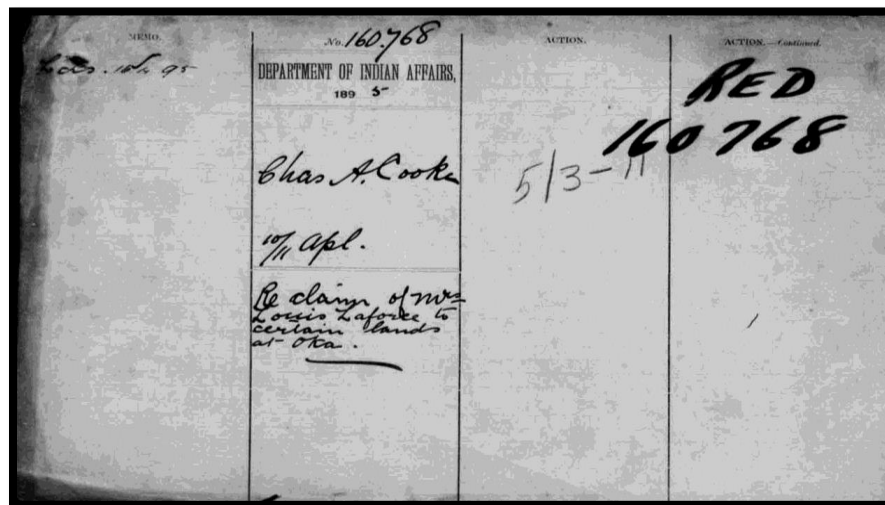 MEMO.
16/4 95
No. 160,768
DEPARTMENT OF INDIAN AFFAIRS,
189 5
Chas A. Cooke
10/11 Apl.
Re claim of Mrs
Louis Laforce to
certain lands
at Oka.
ACTION.
5/3-11
ACTION.—Continued.
RED
160768